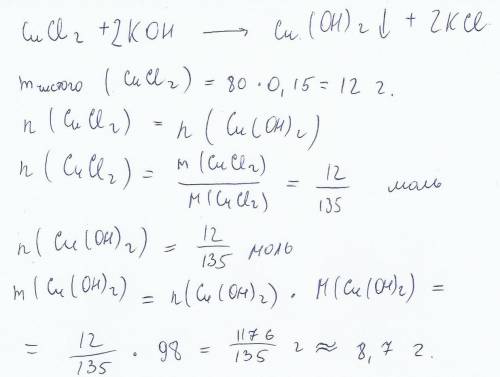 CuCl2 + 2KOH → Cu(OH)2↓ + 2KCl
mчистого (CuCl2) = 80 · 0,15 = 12 г.
n(CuCl2) = n(Cu(OH)2)
n(CuCl2) = m(CuCl2)/M(CuCl2) = 12/135 моль
n(Cu(OH)2) = 12/135 моль
m(Cu(OH)2) = n(Cu(OH)2) · M(Cu(OH)2) =
= 12/135 · 98 = 1176/135 г ≈ 8,7 г.